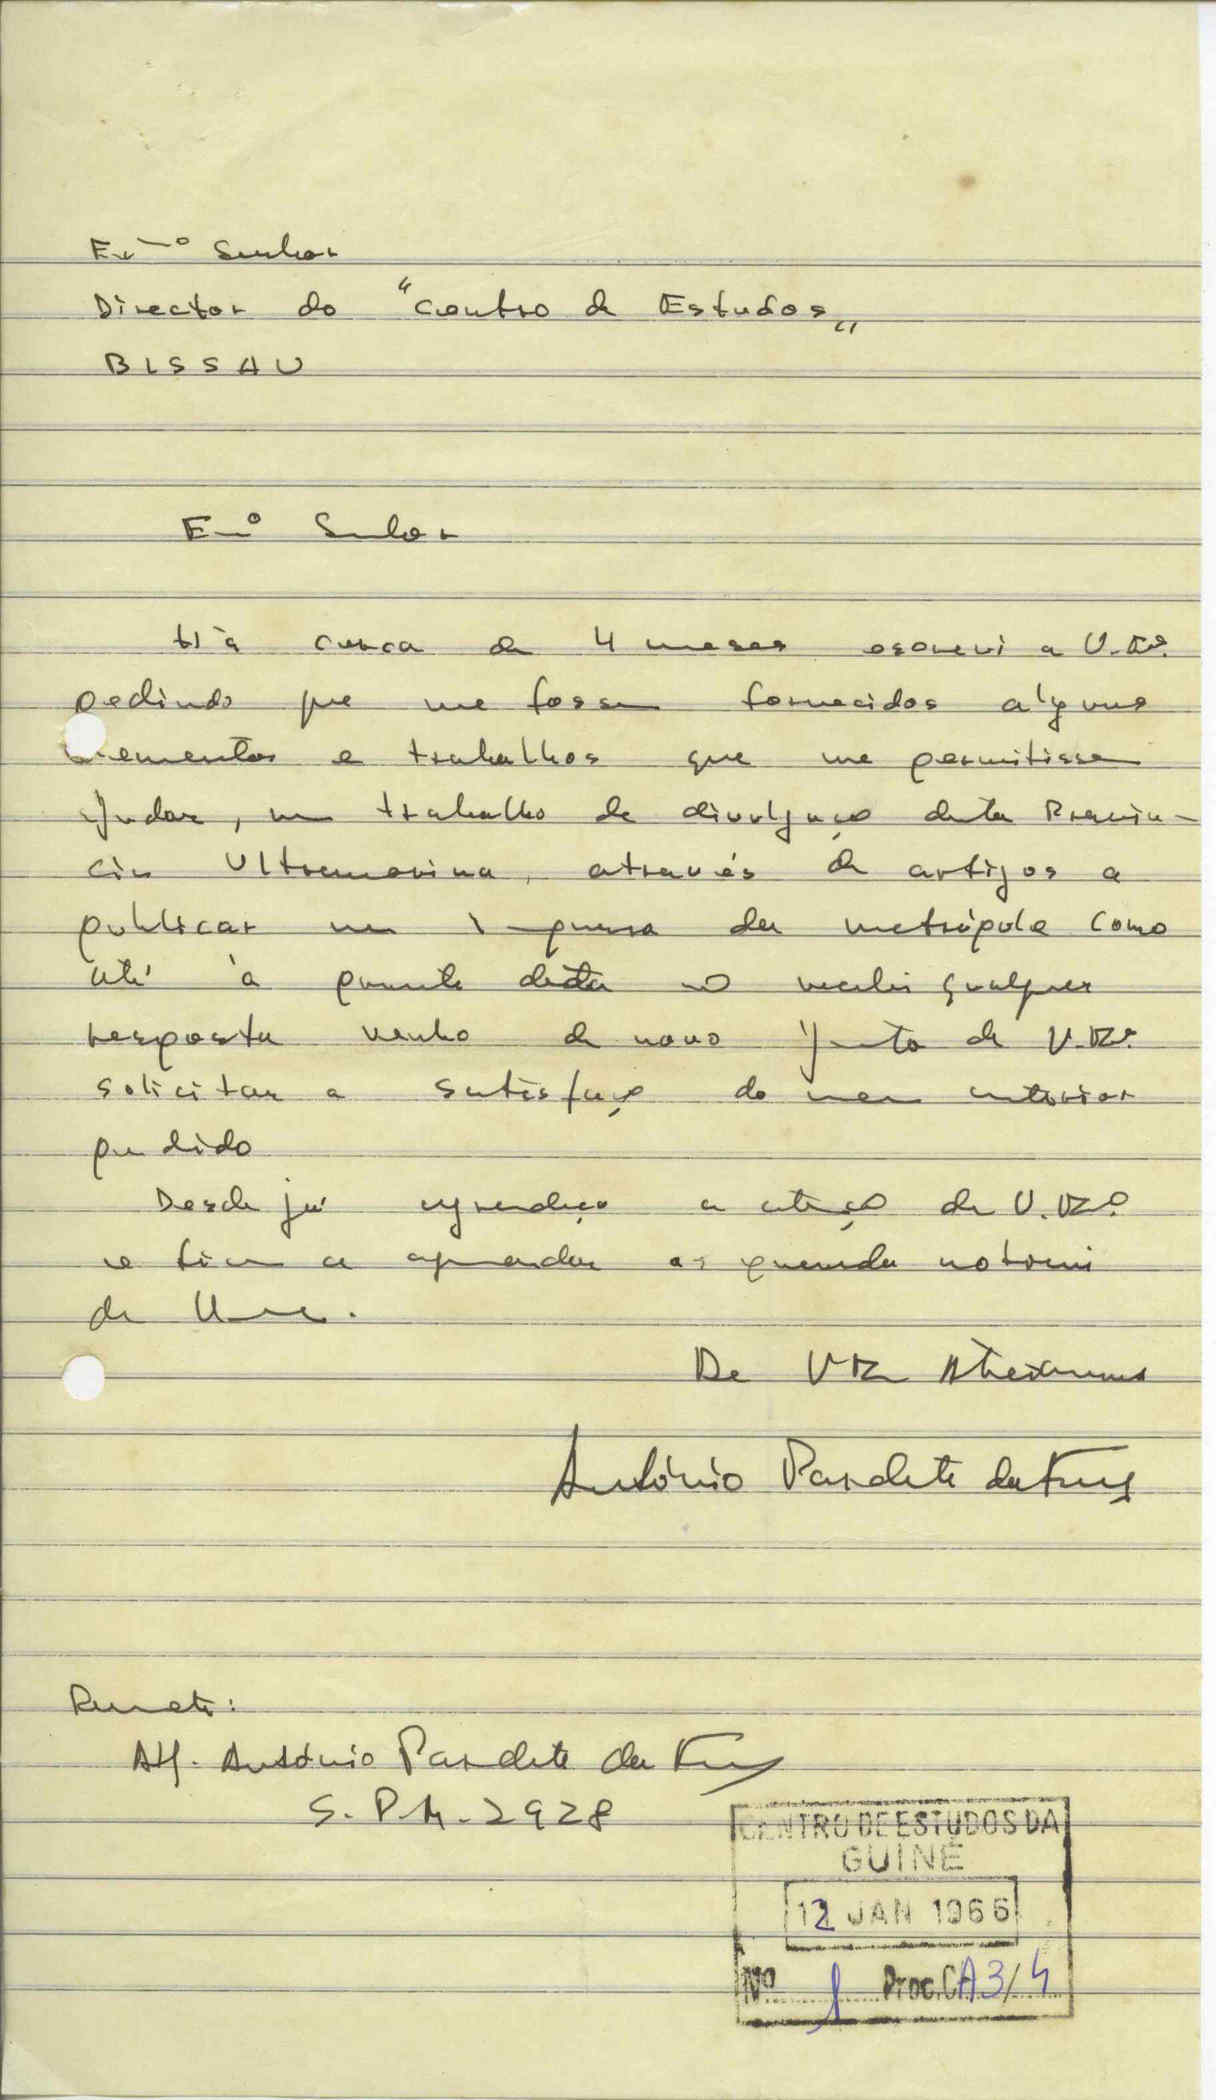 Exmº Senhor
Director do "Centro de Estudos"
BISSAU
Exmº Senhor
Há cerca de 4 meses escrevi a V. Exª.
pedindo que me fossem fornecidos alguns
elementos e trabalhos que me permitissem
ajudar, no trabalho de divulgação desta Provín-
cia Ultramarina, através de artigos a
publicar na Imprensa da metrópole Como
até à presente data não recebi qualquer
resposta venho de novo junto de V. Exª.
solicitar a satisfação do meu anterior
pedido
Desde já agradeço a atenção de V. Exª.
e fico a aguardar
De V. Exª Atenciosamente
António Pardete da
Remete:
Alf. António Pardete da
S.P.M. 2928
CENTRO DE ESTUDOS DA
GUINÉ
12 JAN 1966
Nº 1 Proc. CA 3/4